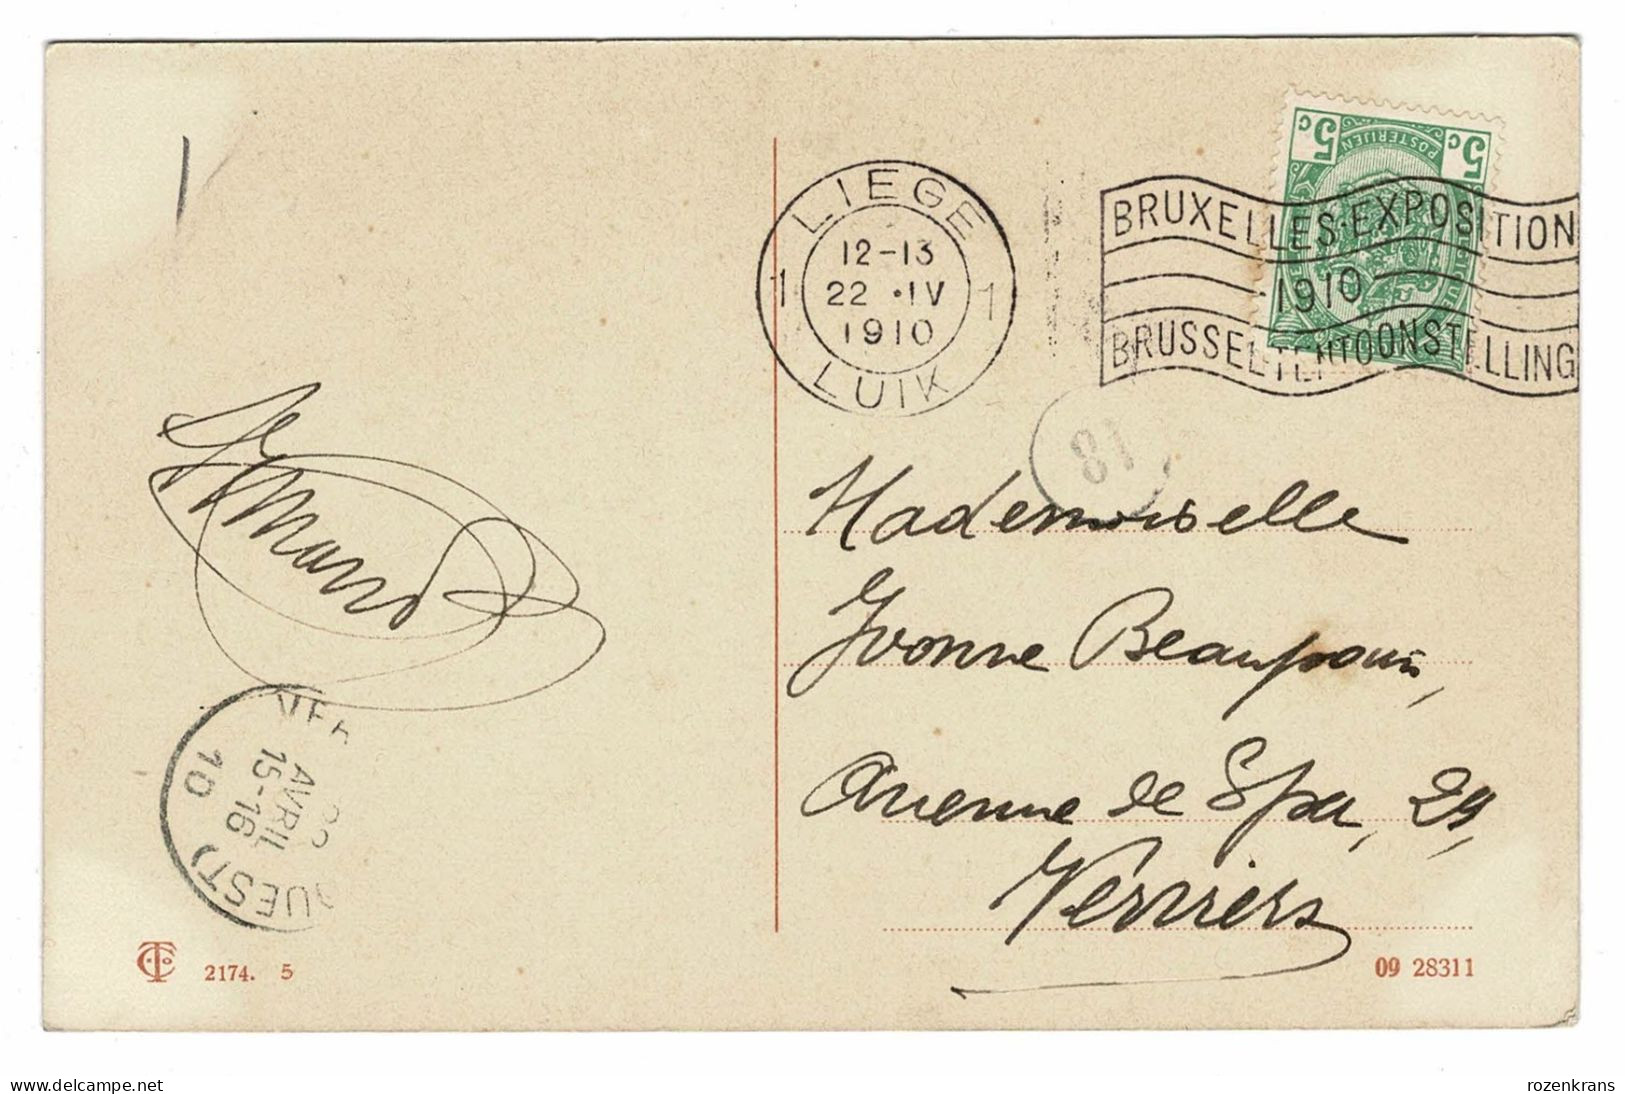 LIEGE
1 12-13 1
22 •IV
1910
LUIK
BRUXELLES-EXPOSITION
1910
BRUSSEL-TENTOONSTELLING
5c 5c
POSTERIJEN
81
Mademoiselle
Yvonne Beaupain,
Avenue de Spa, 29,
Verviers
VER
AVRIL
15-16
10
OUEST)
2174. 5
09 28311
www.delcampe.net
rozenkrans